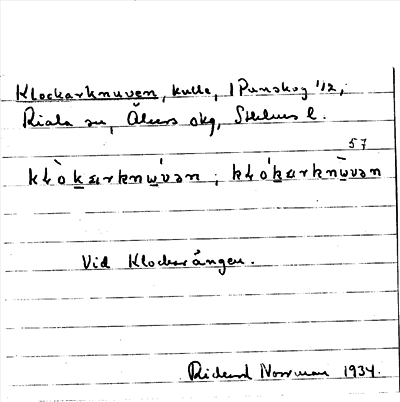 Klockarknuven, kulle, 1 Punskog 1/2,
Riala sn, Åkers skg, Sthlms l.
57
klò̀karknu̱vən ; klókarknu̱vən
Vid Klockarängen.
Rickard Norrman 1934.